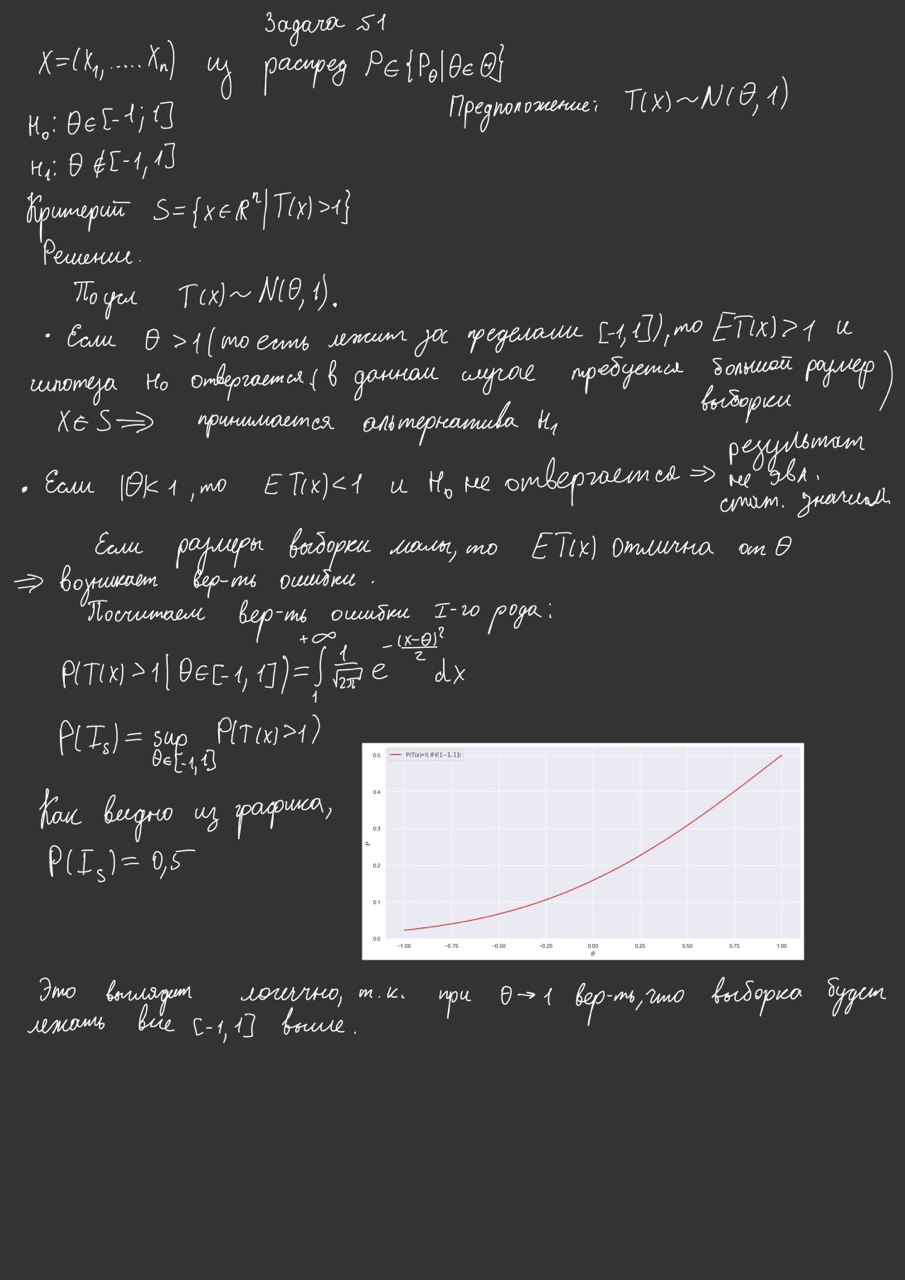 Задача №1
X=(X₁,.....Xₙ) из распред P∈{P_θ|θ∈Θ}
Предположение: T(x)~N(θ,1)
H₀: θ∈[-1;1]
H₁: θ∉[-1,1]
Критерий S={x∈Rⁿ|T(x)>1}
Решение.
По усл T(x)~N(θ,1).
• Если θ>1 (то есть лежит за пределами [-1,1]), то ET(x)>1 и
гипотеза H₀ отвергается (в данном случае требуется большой размер
выборки)
X∈S ⟹ принимается альтернатива H₁
• Если |θ|<1, то ET(x)<1 и H₀ не отвергается ⟹ результат
не явл.
стат. значим.
Если размеры выборки малы, то ET(x) отлична от θ
⟹ возникает вер-ть ошибки.
Посчитаем вер-ть ошибки I-го рода:
P(T(x)>1|θ∈[-1,1])=∫₁^{+∞} 1/√2π e^{-(x-θ)²/2} dx
P(I_S)= sup_{θ∈[-1,1]} P(T(x)>1)
P(T(x)>1| θ∈[−1,1])
0.5
0.4
0.3
0.2
0.1
0.0
P
−1.00 −0.75 −0.50 −0.25 0.00 0.25 0.50 0.75 1.00
θ
Как видно из графика,
P(I_S)= 0,5
Это выглядит логично, т.к. при θ→1 вер-ть, что выборка будет
лежать вне [-1,1] выше.